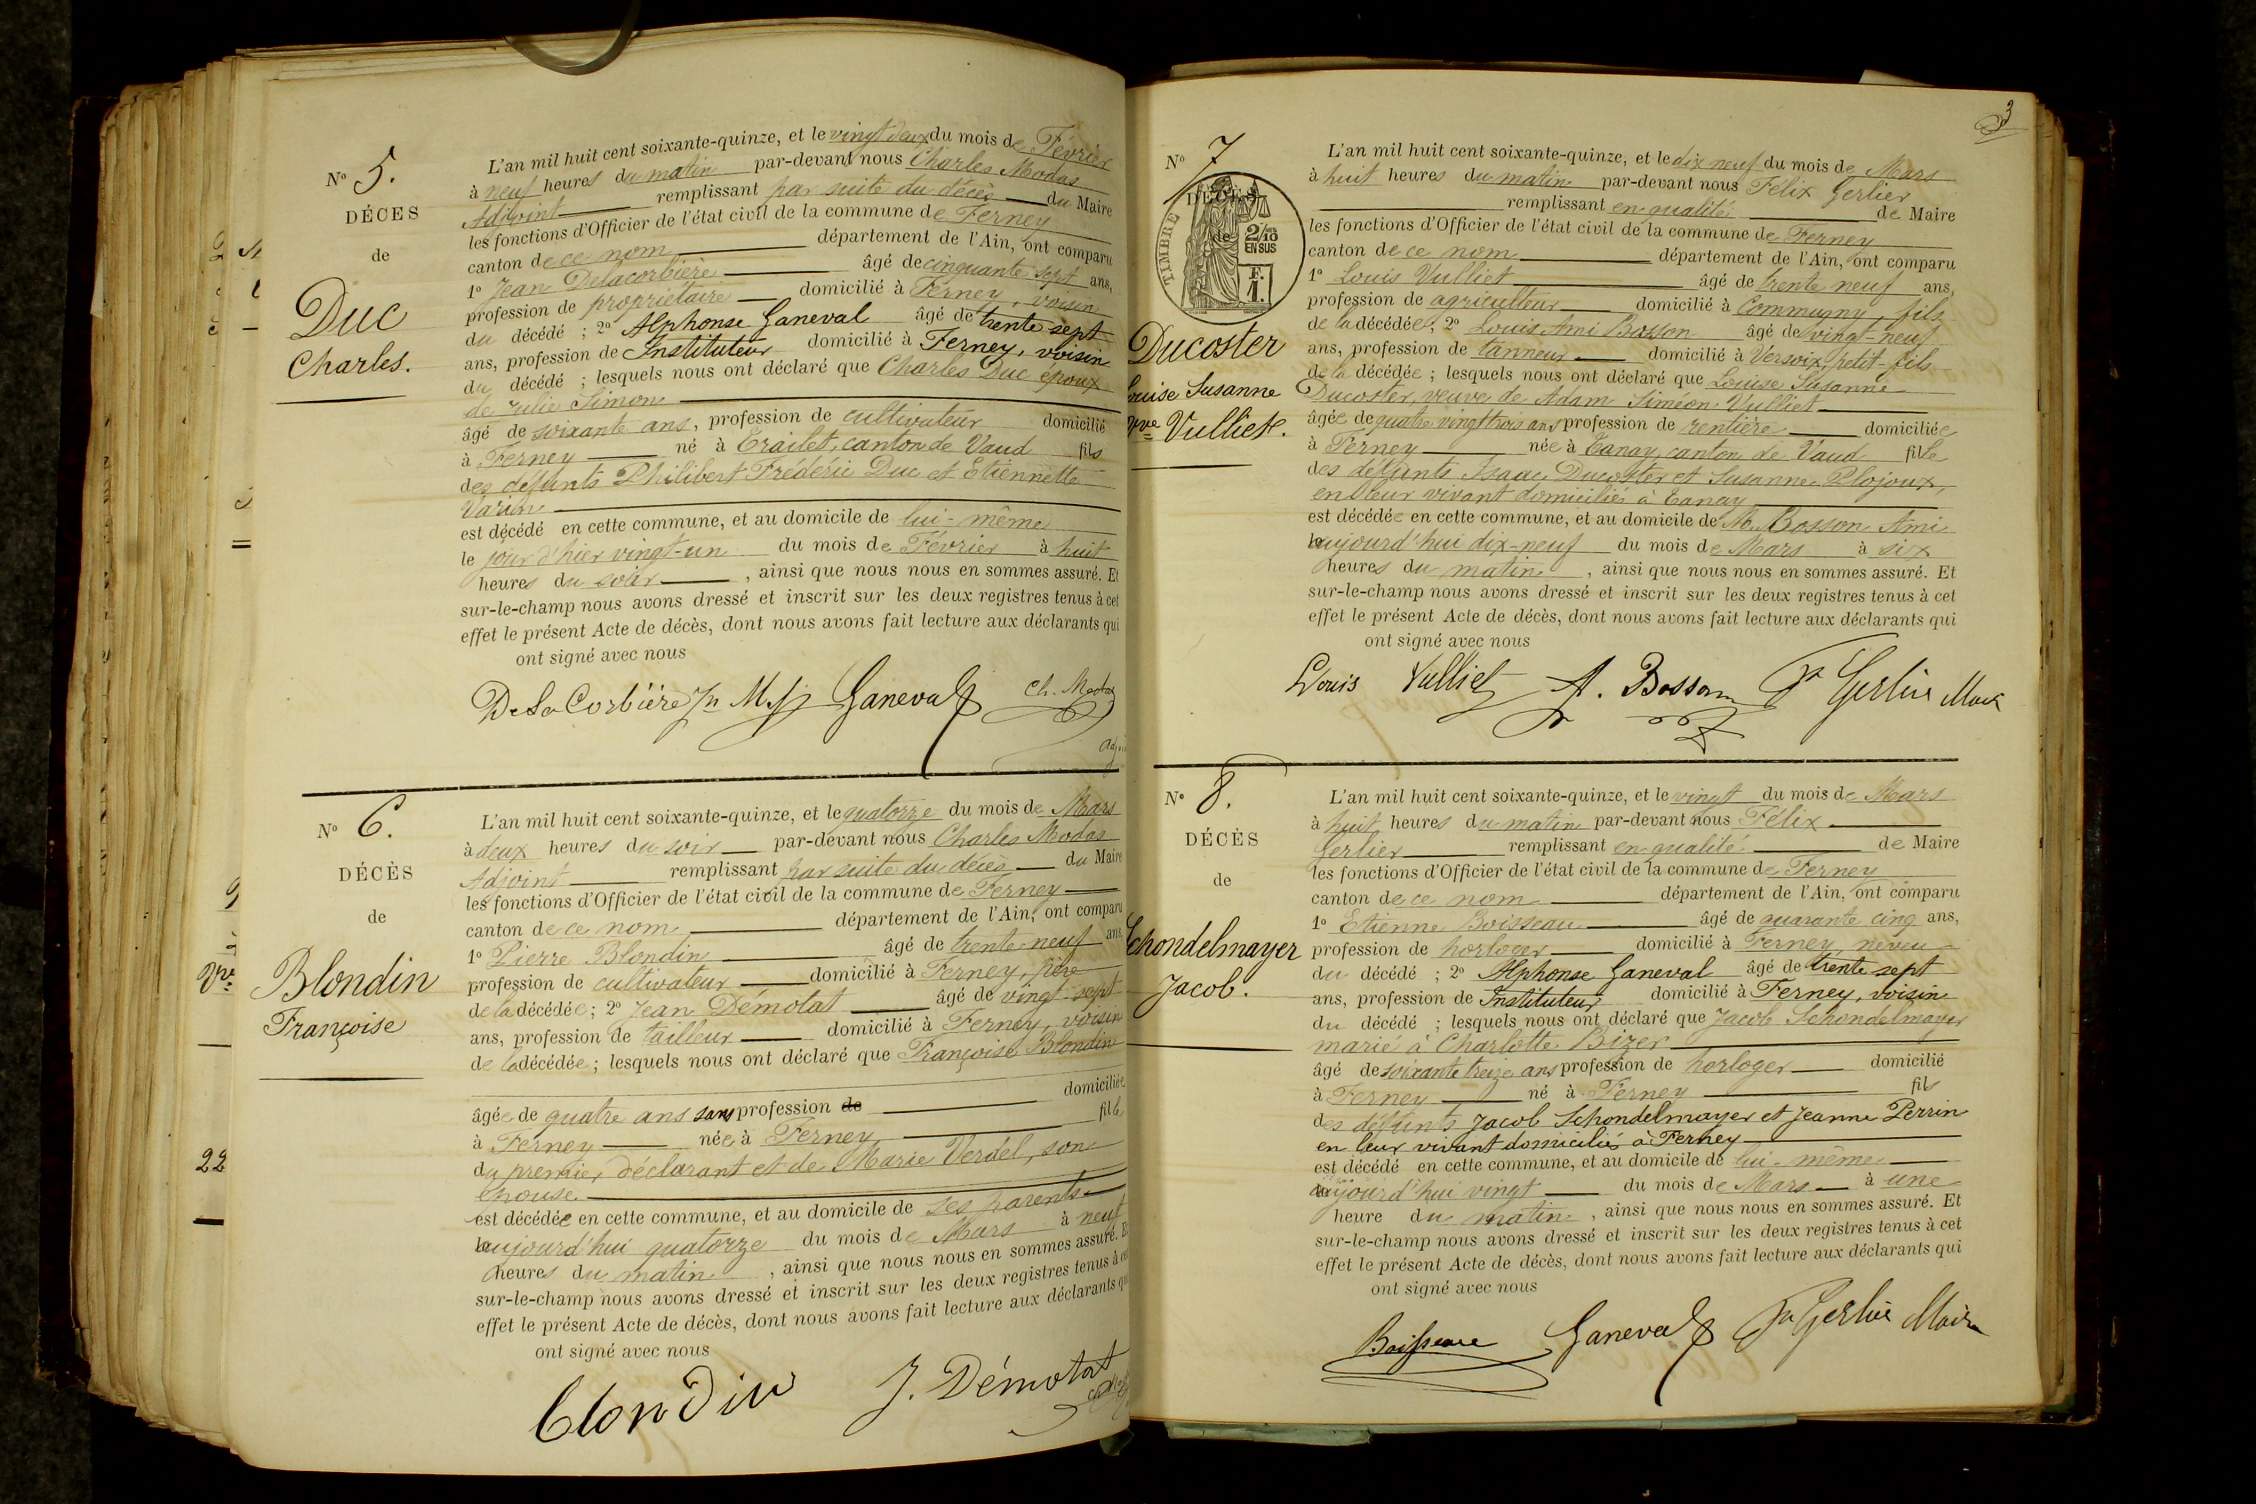 N° 5.
DÉCES
de
Duc
Charles.
L'an mil huit cent soixante-quinze, et le vingt deux du mois de Février
à neuf heures du matin par-devant nous Charles Modas
Adjoint remplissant par suite du décès du Maire
les fonctions d'Officier de l'état civil de la commune de Ferney
canton de ce nom département de l'Ain, ont comparu
1° Jean Delacorbière âgé de cinquante sept ans,
profession de propriétaire domicilié à Ferney, voisin
du décédé ; 2° Alphonse Ganeval âgé de trente sept
ans, profession de Instituteur domicilié à Ferney, voisin
du décédé ; lesquels nous ont déclaré que Charles Duc époux
de Julie Simon
âgé de soixante ans, profession de cultivateur domicilié
à Ferney né à canton de Vaud fils
des défunts Philibert Frédéric Duc et Etiennette
Varin
est décédé en cette commune, et au domicile de lui-même
le jour d'hier vingt-un du mois de Février à huit
heures du soir , ainsi que nous nous en sommes assuré. Et
sur-le-champ nous avons dressé et inscrit sur les deux registres tenus à cet
effet le présent Acte de décès, dont nous avons fait lecture aux déclarants qui
ont signé avec nous
De La Corbière Jn Ganeval Ch. Modas
N° 6.
DÉCÈS
de
Blondin
Françoise
L'an mil huit cent soixante-quinze, et le quatorze du mois de Mars
à deux heures du soir par-devant nous Charles Modas
Adjoint remplissant par suite du décès du Maire
les fonctions d'Officier de l'état civil de la commune de Ferney
canton de ce nom département de l'Ain, ont comparu
1° Pierre Blondin âgé de trente-neuf ans
profession de cultivateur domicilié à Ferney, père
de la décédée ; 2° Jean Démolat âgé de vingt-sept
ans, profession de tailleur domicilié à Ferney, voisin
de la décédée ; lesquels nous ont déclaré que Françoise Blondin
âgée de quatre ans sans profession de domiciliée
à Ferney née à Ferney fille
du premier déclarant et de Marie Verdel, son
épouse.
est décédée en cette commune, et au domicile de ses parents
aujourd'hui quatorze du mois de Mars à neuf
heures du matin , ainsi que nous nous en sommes assuré. Et
sur-le-champ nous avons dressé et inscrit sur les deux registres tenus à cet
effet le présent Acte de décès, dont nous avons fait lecture aux déclarants qui
ont signé avec nous
blondin J. Démolat
22
3
N° 7
DÉCÈS
de
TIMBRE
2/10
EN SUS
F.
1.
Ducoster
Louise Susanne
Vve Vulliet.
L'an mil huit cent soixante-quinze, et le dix neuf du mois de Mars
à huit heures du matin par-devant nous Félix Gerlier
remplissant en qualité de Maire
les fonctions d'Officier de l'état civil de la commune de Ferney
canton de ce nom département de l'Ain, ont comparu
1° Louis Vulliet âgé de trente neuf ans,
profession de agriculteur domicilié à Commugny, fils
de la décédée ; 2° Louis Ami Bosson âgé de vingt-neuf
ans, profession de tanneur domicilié à Versoix, petit-fils
de la décédée ; lesquels nous ont déclaré que Louise Susanne
Ducoster, veuve de Adam Siméon Vulliet
âgée de quatre vingt trois ans profession de rentière domiciliée
à Ferney née à Tanay, canton de Vaud fille
des défunts Isaac Ducoster et Susanne Plojoux,
en leur vivant domiciliés à Tanay
est décédée en cette commune, et au domicile de M. Bosson Ami
aujourd'hui dix-neuf du mois de Mars à six
heures du matin , ainsi que nous nous en sommes assuré. Et
sur-le-champ nous avons dressé et inscrit sur les deux registres tenus à cet
effet le présent Acte de décès, dont nous avons fait lecture aux déclarants qui
ont signé avec nous
Louis Vulliet A. Bosson Fx Gerlier Maire
N° 8.
DÉCÈS
de
Schondelmayer
Jacob.
L'an mil huit cent soixante-quinze, et le vingt du mois de Mars
à huit heures du matin par-devant nous Félix
Gerlier remplissant en qualité de Maire
les fonctions d'Officier de l'état civil de la commune de Ferney
canton de ce nom département de l'Ain, ont comparu
1° Etienne Boisseau âgé de quarante cinq ans,
profession de horloger domicilié à Ferney, neveu
du décédé ; 2° Alphonse Ganeval âgé de trente sept
ans, profession de Instituteur domicilié à Ferney, voisin
du décédé ; lesquels nous ont déclaré que Jacob Schondelmayer
marié à Charlotte Bizer
âgé de soixante treize ans profession de horloger domicilié
à Ferney né à Ferney fils
des défunts Jacob Schondelmayer et Jeanne Perrin
en leur vivant domiciliés à Ferney
est décédé en cette commune, et au domicile de lui-même
aujourd'hui vingt du mois de Mars à une
heure du matin , ainsi que nous nous en sommes assuré. Et
sur-le-champ nous avons dressé et inscrit sur les deux registres tenus à cet
effet le présent Acte de décès, dont nous avons fait lecture aux déclarants qui
ont signé avec nous
Boisseau Ganeval Fx Gerlier Maire